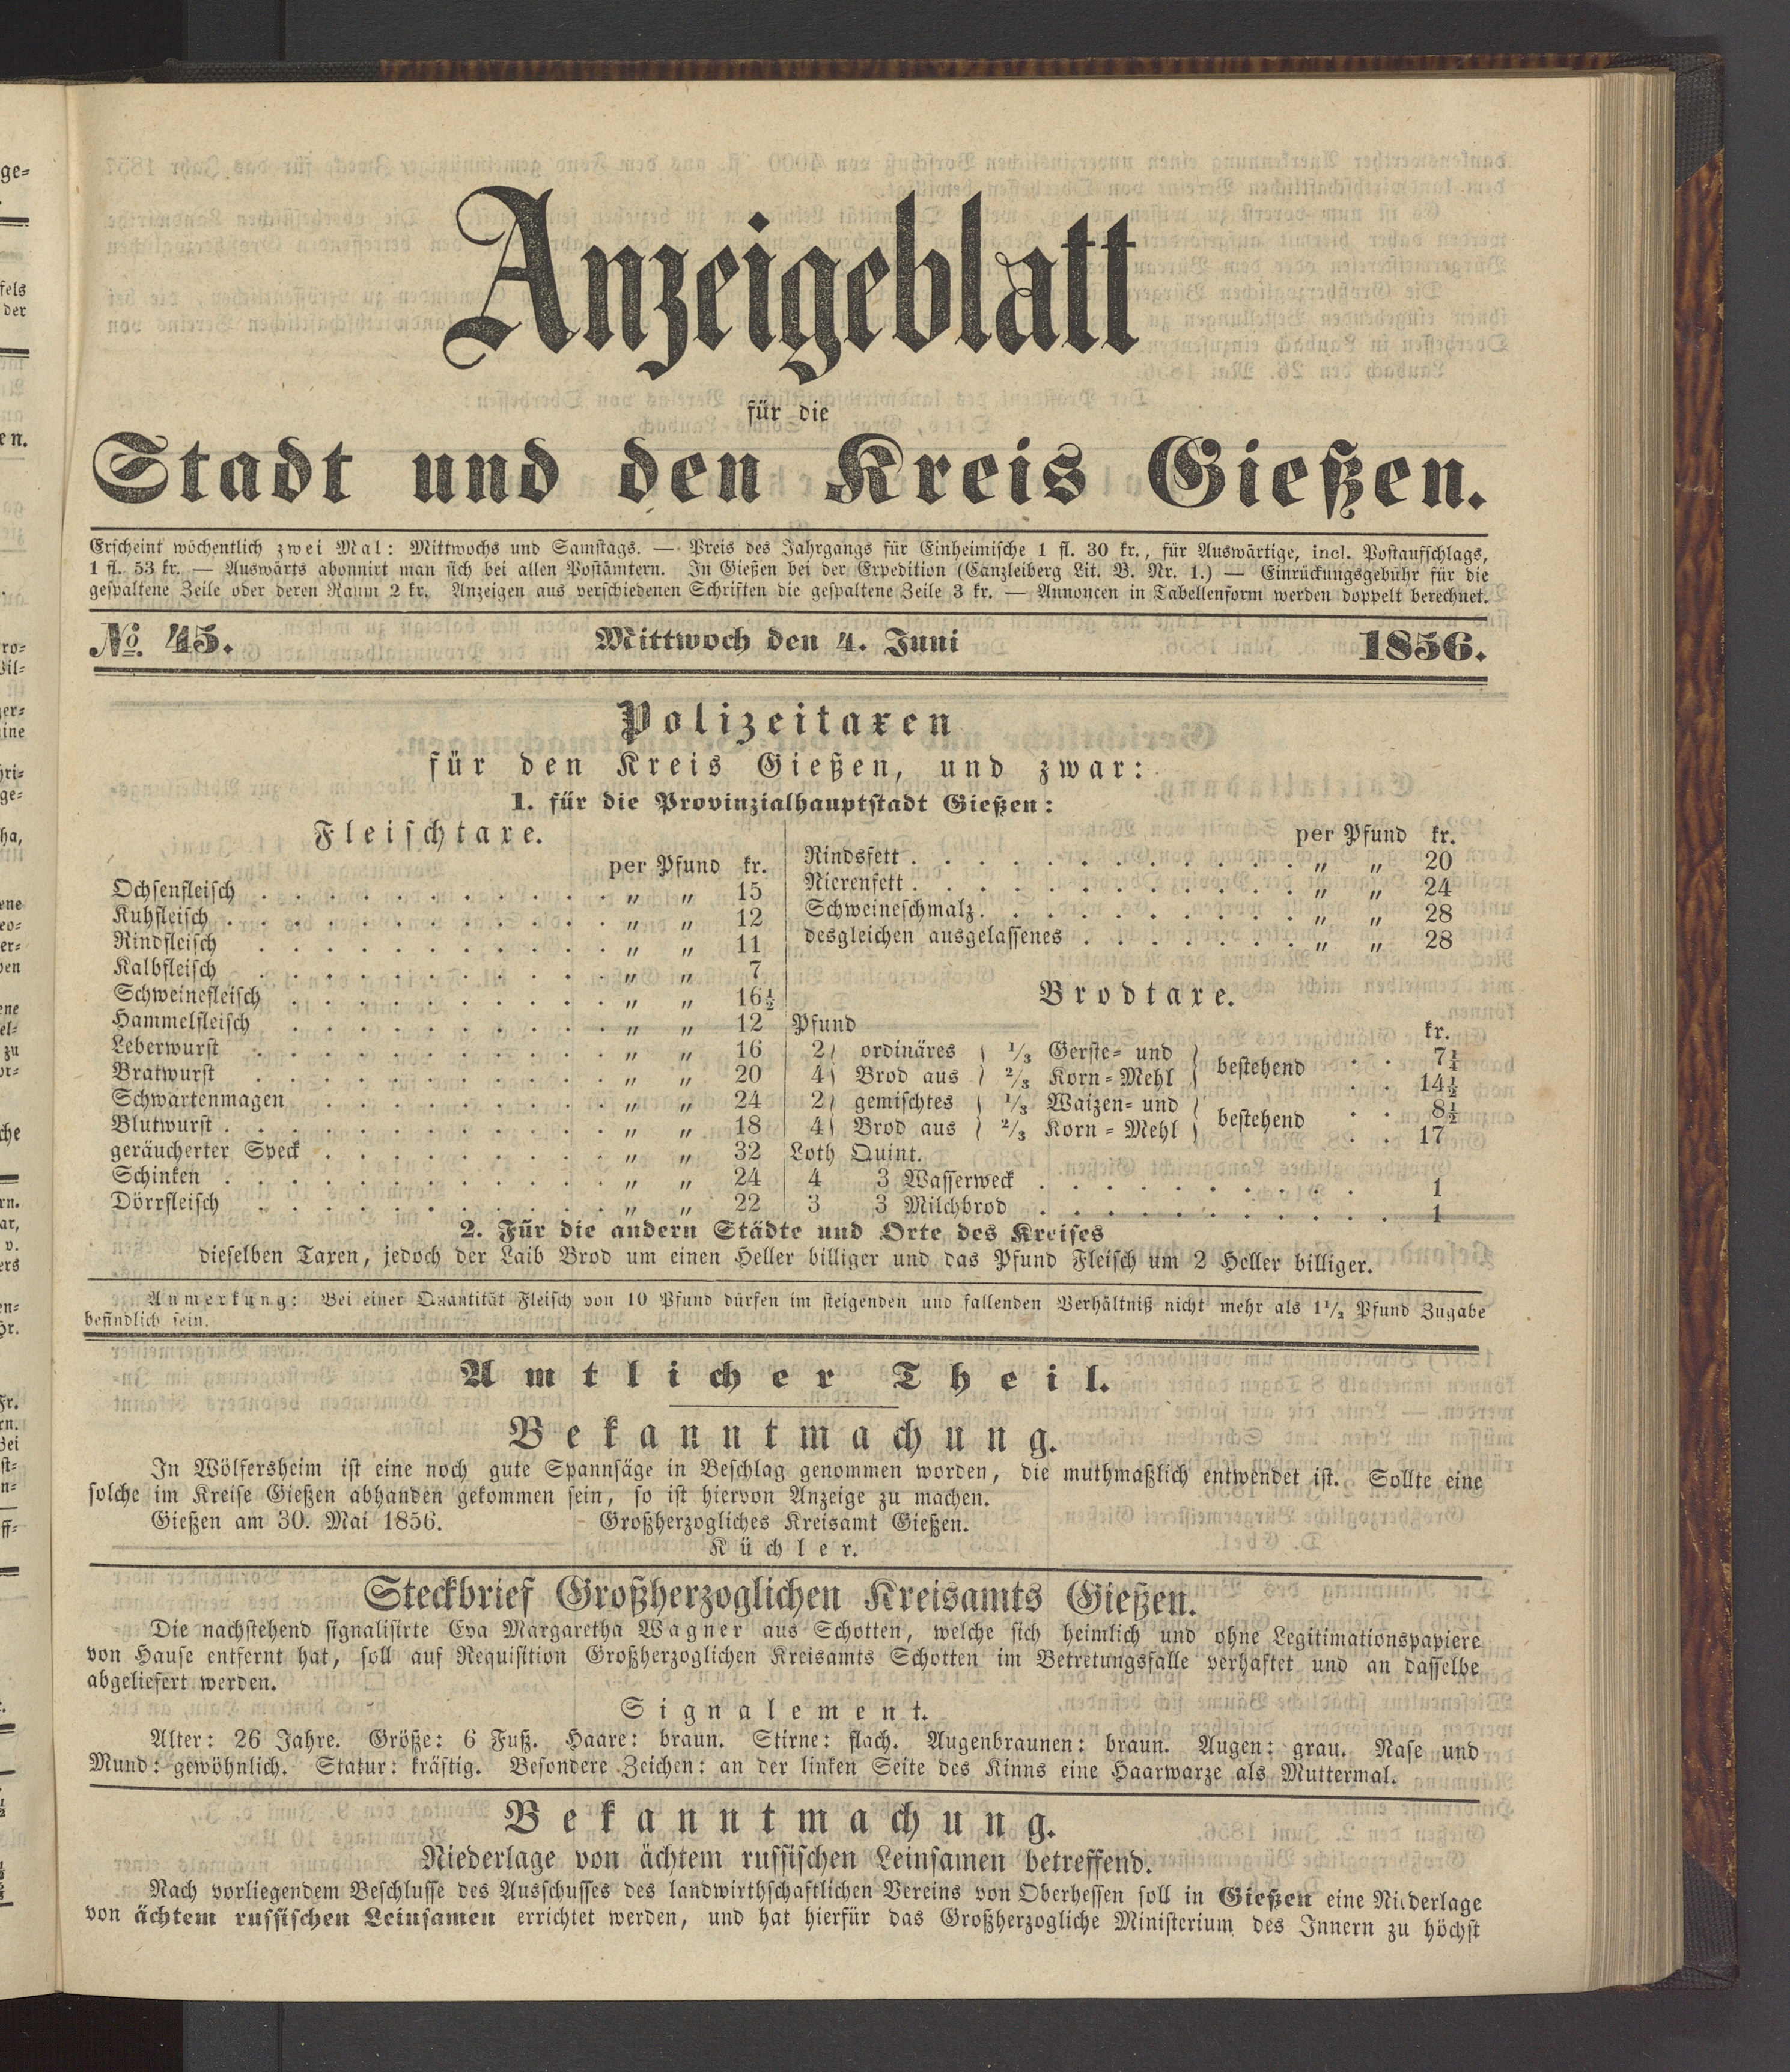 Anzeigeblatt
für die
Stadt und den Kreis Gießen.
Erscheint wöchentlich zwei Mal: Mittwochs und Samstags. — Preis des Jahrgangs für Einheimische 1 fl. 30 kr., für Auswärtige, incl. Postaufschlags,
1 fl. 53 kr. — Auswärts abonnirt man sich bei allen Postämtern. In Gießen bei der Expedition (Canzleiberg Lit. B. Nr. 1.) — Einrückungsgebühr für die
gespaltene Zeile oder deren Raum 2 kr. Anzeigen aus verschiedenen Schriften die gespaltene Zeile 3 kr. — Annoncen in Tabellenform werden doppelt berechnet.
No. 45. Mittwoch den 4. Juni 1856.
Polizeitaxen
für den Kreis Gießen, und zwar:
1. für die Provinzialhauptstadt Gießen:
Fleischtaxe.
per Pfund kr.
Ochsenfleisch . . . . . . . . . . . . „ „ 15
Kuhfleisch . . . . . . . . . . . . „ „ 12
Rindfleisch . . . . . . . . . . . „ „ 11
Kalbfleisch . . . . . . . . . . . „ „ 7
Schweinefleisch . . . . . . . . . . „ „ 16½
Hammelfleisch . . . . . . . . . . „ „ 12
Leberwurst . . . . . . . . . . . „ „ 16
Bratwurst . . . . . . . . . . . „ „ 20
Schwartenmagen . . . . . . . . . „ „ 24
Blutwurst . . . . . . . . . . . . „ „ 18
geräucherter Speck . . . . . . . . . „ „ 32
Schinken . . . . . . . . . . . . „ „ 24
Dörrfleisch . . . . . . . . . . . „ „ 22
per Pfund kr.
Rindsfett . . . . . . . . . . . . „ „ 20
Nierenfett . . . . . . . . . . . . „ „ 24
Schweineschmalz . . . . . . . . . . „ „ 28
desgleichen ausgelassenes . . . . . . . „ „ 28
Brodtaxe.
Pfund kr.
2) ordinäres ( 1/3 Gerste- und ) bestehend . . 7¼
4) Brod aus ( 2/3 Korn-Mehl ) . . 14½
2) gemischtes ( 1/3 Waizen- und ) bestehend . . 8½
4) Brod aus ( 2/3 Korn-Mehl ) . . 17
Loth Quint.
4 3 Wasserweck . . . . . . . . . . 1
3 3 Milchbrod . . . . . . . . . . . 1
2. Für die andern Städte und Orte des Kreises
dieselben Taxen, jedoch der Laib Brod um einen Heller billiger und das Pfund Fleisch um 2 Heller billiger.
Anmerkung: Bei einer Quantität Fleisch von 10 Pfund dürfen im steigenden und fallenden Verhältniß nicht mehr als 1½ Pfund Zugabe
befindlich sein.
Amtlicher Theil.
Bekanntmachung.
In Wölfersheim ist eine noch gute Spannsäge in Beschlag genommen worden, die muthmaßlich entwendet ist. Sollte eine
solche im Kreise Gießen abhanden gekommen sein, so ist hiervon Anzeige zu machen.
Gießen am 30. Mai 1856. Großherzogliches Kreisamt Gießen.
Küchler.
Steckbrief Großherzoglichen Kreisamts Gießen.
Die nachstehend signalisirte Eva Margaretha Wagner aus Schotten, welche sich heimlich und ohne Legitimationspapiere
von Hause entfernt hat, soll auf Requisition Großherzoglichen Kreisamts Schotten im Betretungsfalle verhaftet und an dasselbe
abgeliefert werden.
Signalement.
Alter: 26 Jahre. Größe: 6 Fuß. Haare: braun. Stirne: flach. Augenbraunen: braun. Augen: grau. Nase und
Mund: gewöhnlich. Statur: kräftig. Besondere Zeichen: an der linken Seite des Kinns eine Haarwarze als Muttermal.
Bekanntmachung.
Niederlage von ächtem russischen Leinsamen betreffend.
Nach vorliegendem Beschlusse des Ausschusses des landwirthschaftlichen Vereins von Oberhessen soll in Gießen eine Niederlage
von ächtem russischen Leinsamen errichtet werden, und hat hierfür das Großherzogliche Ministerium des Innern zu höchst